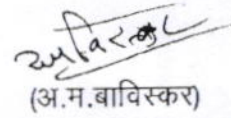 (अ.म.बाविस्कर)